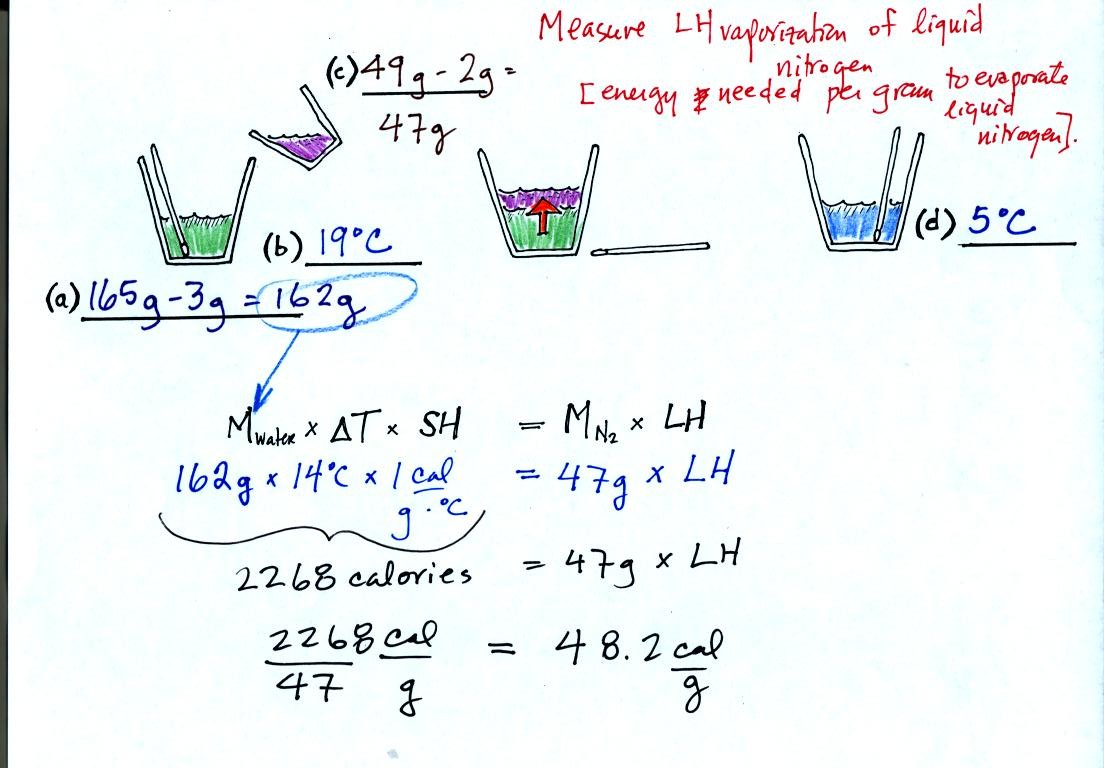 Measure LH vaporization of liquid
nitrogen
[energy needed per gram to evaporate
liquid
nitrogen].
(c) 49g - 2g =
47g
(b) 19°C
(d) 5°C
(a) 165g - 3g = 162g
M water x ΔT x SH = M N₂ x LH
162g x 14°C x 1 cal = 47g x LH
g · °C
2268 calories = 47g x LH
2268 cal = 48.2 cal
47 g g